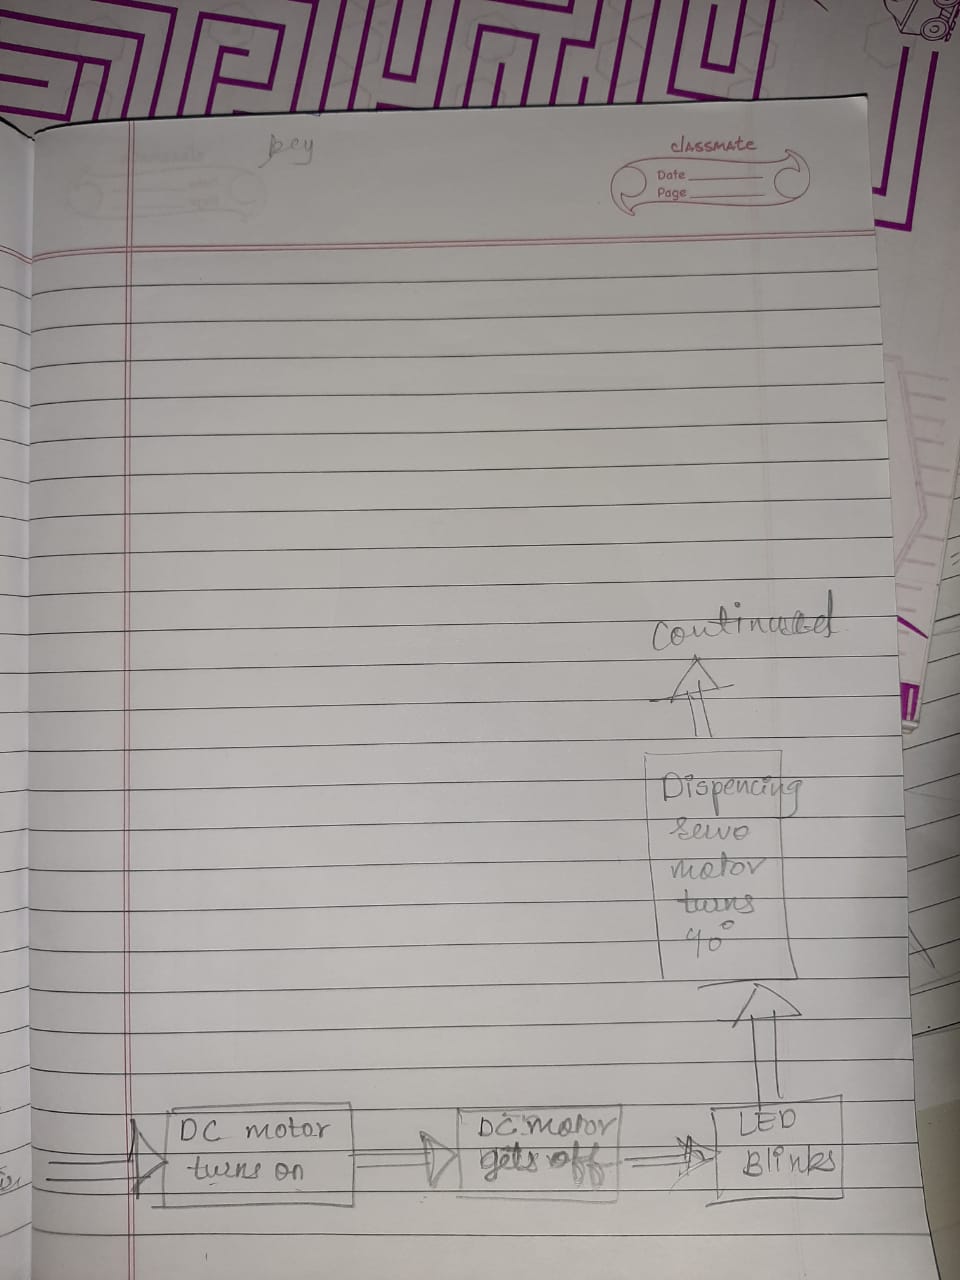 pey
classmate
Date
Page
Continued
Dispencing
servo
motor
turns
90°
DC motor
turns on
DC motor
gets off
LED
Blinks